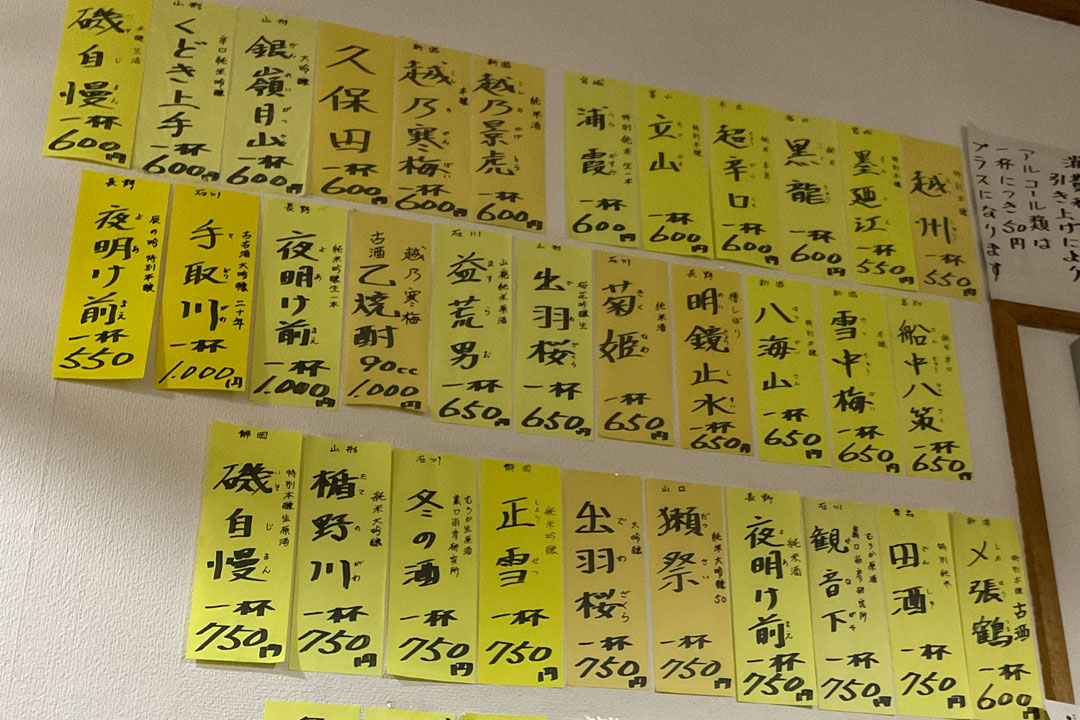 磯自慢 本醸生酒 一杯 600円
山形 くどき上手 辛口純米吟醸 一杯 600円
山形 銀嶺月山 大吟醸 一杯 600円
久保田 一杯 600円
新潟 越乃寒梅 本醸 一杯 600円
新潟 越乃景虎 純米酒 一杯 600円
宮城 浦霞 特別純米生一本 一杯 600円
富山 立山 特別本醸 一杯 600円
超辛口 一杯 600円
黒龍 純米 一杯 600円
宮城 墨廼江 特別本醸 一杯 550円
越州 特別本醸 一杯 550円
引き上げにより
アルコール類は
一杯につき50円
プラスになります
長野 夜明け前 辰の吟 特別本醸 一杯 550
石川 手取川 古古酒大吟醸二十年 一杯 1,000円
長野 夜明け前 純米吟醸生一本 一杯 1,000円
越乃寒梅 古酒 乙焼酎 90cc 1,000円
石川 益荒男 山廃純米原酒 一杯 650円
山形 出羽桜 桜花吟醸生 一杯 650円
石川 菊姫 純米酒 一杯 650円
長野 明鏡止水 槽しぼり 一杯 650円
新潟 八海山 特別本醸 一杯 650円
新潟 雪中梅 本醸 一杯 650円
高知 船中八策 一杯 650円
静岡 磯自慢 特別本醸生原酒 一杯 750円
山形 楯野川 純米大吟醸 一杯 750円
石川 冬の酒 むろか生原酒 農口尚彦研究所 一杯 750円
静岡 正雪 純米吟醸 一杯 750円
出羽桜 大吟醸 一杯 750円
山口 獺祭 純米大吟醸50 一杯 750円
長野 夜明け前 純米酒 一杯 750円
石川 観音下 むろか原酒 農口尚彦研究所 一杯 750円
青森 田酒 特別純米 一杯 750円
新潟 〆張鶴 特別本醸 古酒 一杯 600円